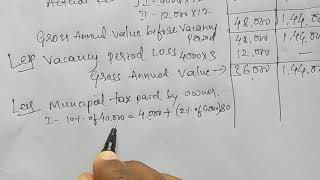 I - 12,000 × 12
Gross Annual Value before Vacancy Period 48,000 1,44,000
48,000 1,44,000
Less Vacancy Period Loss 4000×3 12,000 —
Gross Annual Value → 36,000 1,44,000
Less Municipal tax paid by owner.
I - 10% of 40,000 = 4,000 + (2% of 4000)80